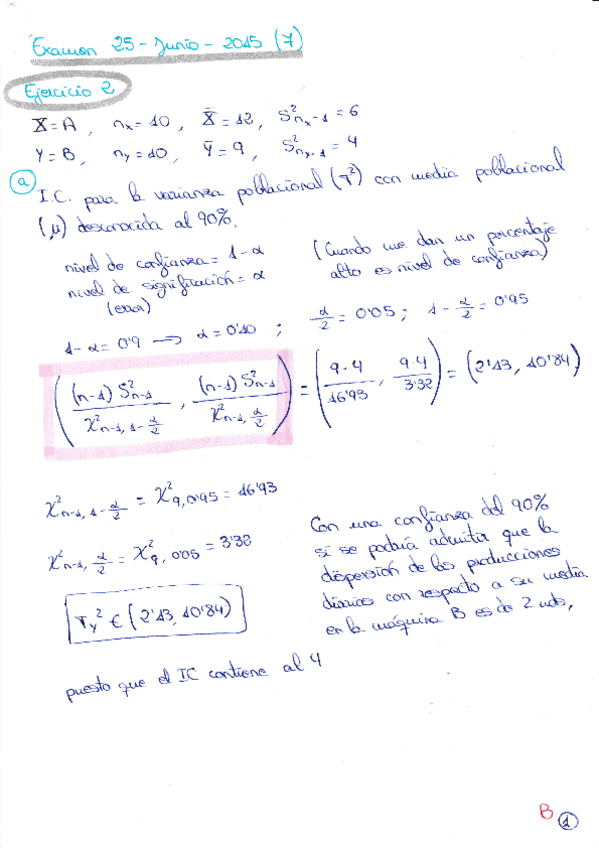 Examen 25-Junio-2015 (7)
Ejercicio 2
X = A , nx = 10 , X̄ = 12 , S²nx-1 = 6
Y = B , ny = 10 , Ȳ = 9 , S²ny-1 = 4
a) I.C. para la varianza poblacional (σ²) con media poblacional
(μ) desconocida al 90%.
nivel de confianza = 1-α
nivel de significación = α
(error)
(Cuando me dan un porcentaje
alto es nivel de confianza)
1-α = 0'9 → α = 0'10 ; α/2 = 0'05 ; 1-α/2 = 0'95
( (n-1) S²n-1 / χ²n-1, 1-α/2 , (n-1) S²n-1 / χ²n-1, α/2 ) = ( 9·4 / 16'93 , 9·4 / 3'32 ) = (2'13, 10'84)
χ²n-1, 1-α/2 = χ²9, 0'95 = 16'93
χ²n-1, α/2 = χ²9, 0'05 = 3'32
σy² ∈ (2'13, 10'84)
Con una confianza del 90%
si se podría admitir que la
dispersión de las producciones
diarias con respecto a su media
en la máquina B es de 2 uds,
puesto que el IC contiene al 4
B 1